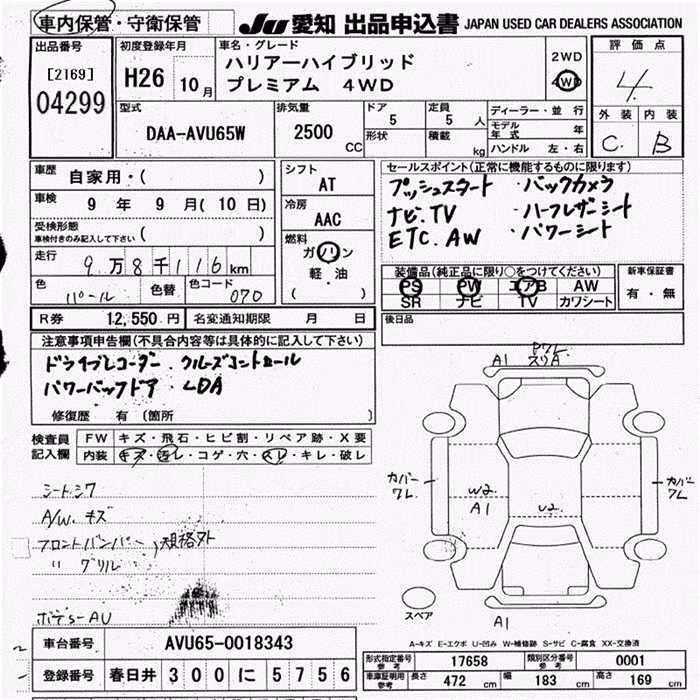 車内保管・守衛保管
JU 愛知 出品申込書 JAPAN USED CAR DEALERS ASSOCIATION
出品番号
[2169]
04299
初度登録年月
H26 10月
車名・グレード
ハリアーハイブリッド
プレミアム 4WD
2WD
4WD
評価点
4.
外装 内装
C. B
型式
DAA-AVU65W
排気量
2500 CC
ドア 5
形状
定員 5 人
積載 kg
ディーラー・並行
モデル年式 年
ハンドル 左・右
車歴 自家用・( )
車検 9年 9月(10日)
受検形態
車検付きのみ記入して下さい ( )
走行 9万8千116km
色 パール 色替 色コード 070
シフト
AT
冷房
AAC
燃料
ガソリン
軽・油
( )
セールスポイント(正常に機能するものに限ります)
プッシュスタート ・バックカメラ
ナビ.TV ・ハーフレザーシート
ETC.AW ・パワーシート
装備品(純正品に限り○をつけてください)
PS PW エアB AW
SR ナビ TV カワシート
新車保証書
有・無
R券 12,550円 名変通知期限 月 日
後日品
注意事項申告欄(不具合内容等は具体的に記入して下さい)
ドライブレコーダー.クルーズコントロール
パワーバックドア.LDA
修復歴 有 (箇所 )
検査員記入欄
FW キズ・飛石・ヒビ割・リペア跡・X要
内装 キズ・汚レ・コゲ・穴・スレ・キレ・破レ
シートシワ
A/W.キズ
フロントバンパー、規格外
〃 グリル
ボデS-AU
A1
Pワレ
スリA
カバーワレ
W2
A1
U2
カバーワレ
スペア
A1
A-キズ E-エクボ U-凹み W-補修跡 S-サビ C-腐食 XX-交換済
車台番号 AVU65-0018343
登録番号 春日井 300 に 5756
形式指定番号参考 17658 類別区分番号参考 0001
車庫証明用参考 長さ 472 cm 幅 183 cm 高さ 169 cm